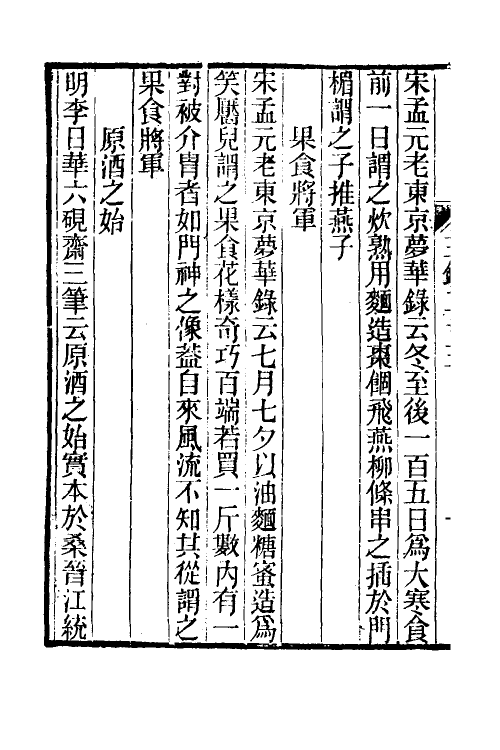 宋孟元老東京夢華錄云冬至後一百五日爲大寒食
前一日謂之炊熟用麵造棗䭅飛燕柳條串之插於門
楣謂之子推燕子
果食將軍
宋孟元老東京夢華錄云七月七夕以油麵糖蜜造爲
笑靨兒謂之果食花樣奇巧百端若買一斤數內有一
對被介胄者如門神之像葢自來風流不知其從謂之
果食將軍
原酒之始
明李日華六硯齋三筆云原酒之始實本於桑晉江統